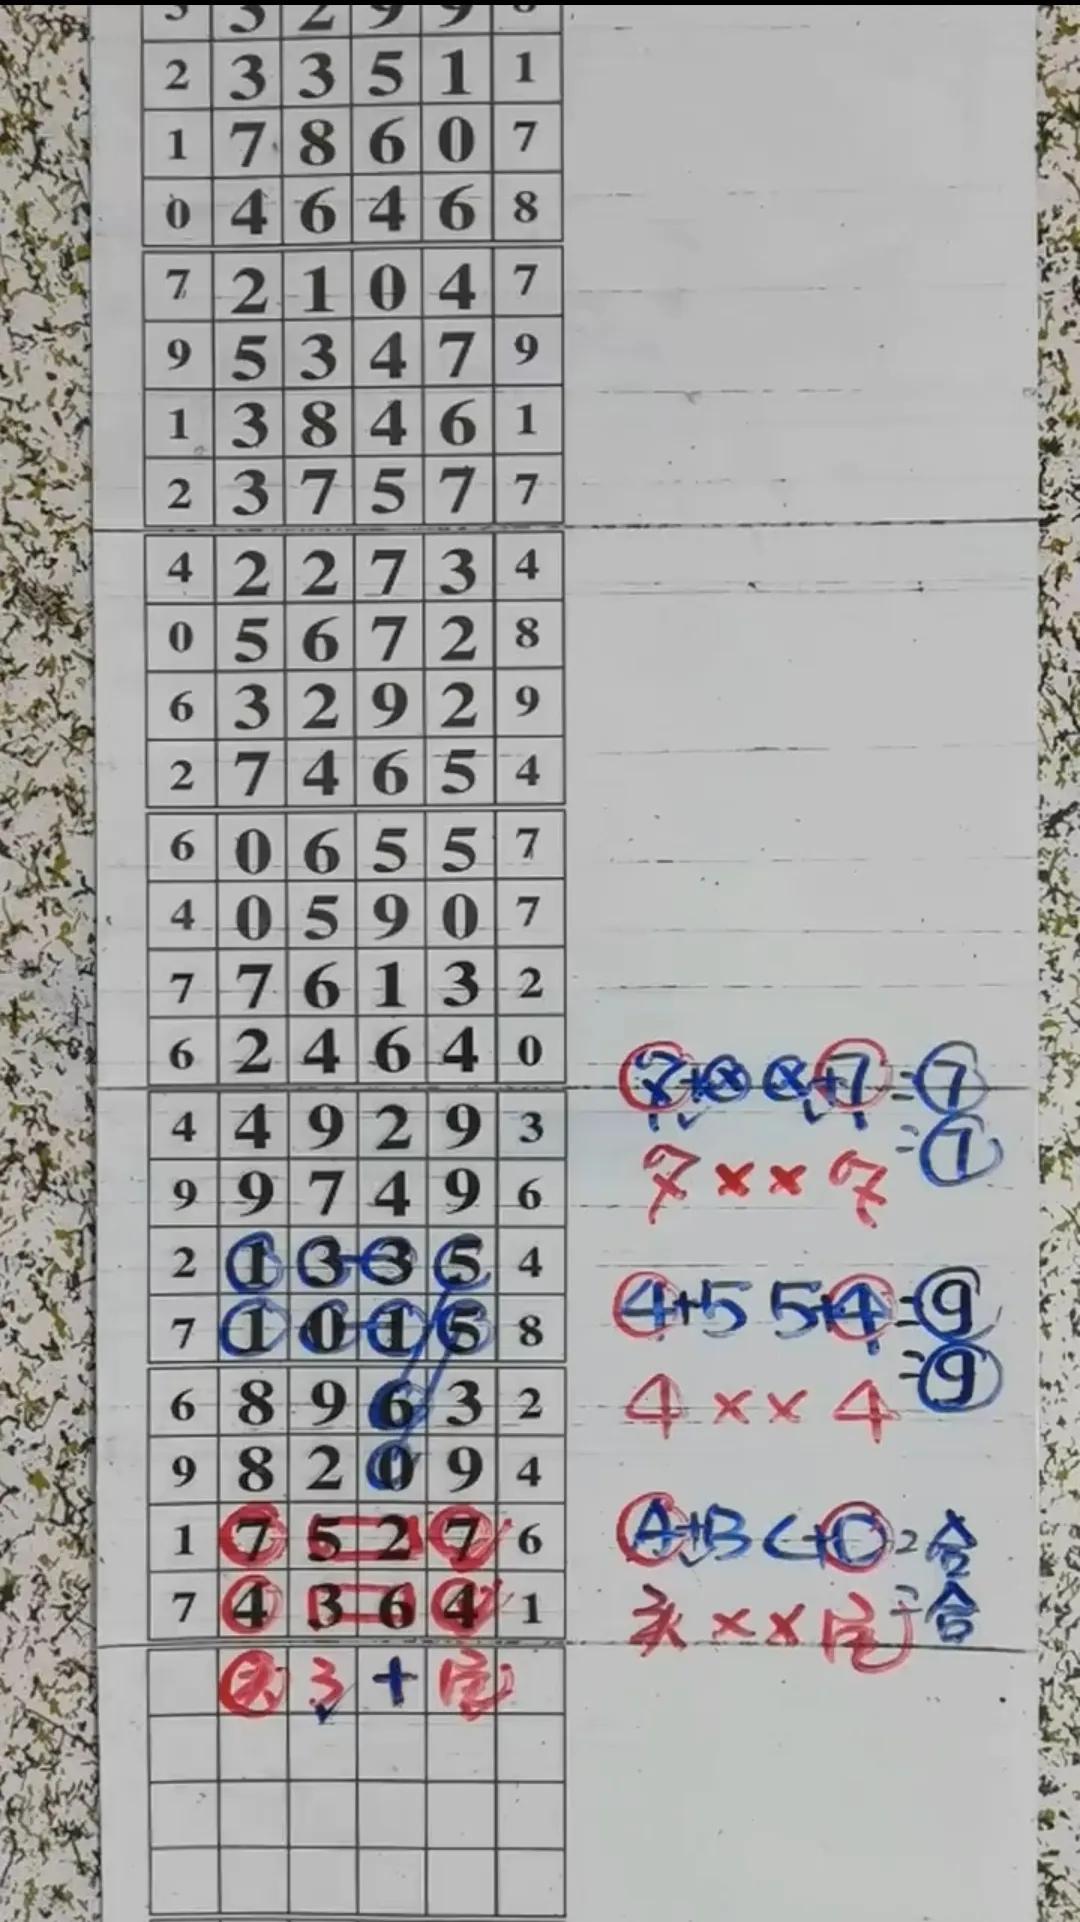 2 3 3 5 1 1
1 7 8 6 0 7
0 4 6 4 6 8
7 2 1 0 4 7
9 5 3 4 7 9
1 3 8 4 6 1
2 3 7 5 7 7
4 2 2 7 3 4
0 5 6 7 2 8
6 3 2 9 2 9
2 7 4 6 5 4
6 0 6 5 5 7
4 0 5 9 0 7
7 7 6 1 3 2
6 2 4 6 4 0
4 4 9 2 9 3
9 9 7 4 9 6
2 1 3 3 5 4
7 1 0 1 5 8
6 8 9 6 3 2
9 8 2 0 9 4
1 7 5 2 7 6
7 4 3 6 4 1
头 3 + 尾
=7
7 x x 7
4+5 5+4=9
=9
4 x x 4
A+B C+D=合
头 x x 尾=合